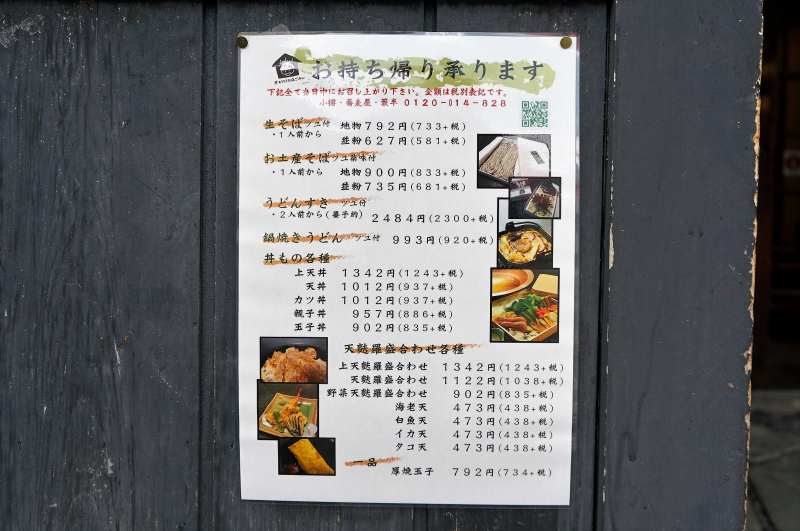 お持ち帰り承ります
下記全て当日中にお召し上がり下さい。金額は税別表記です。
小樽・蕎麦屋・籔半 0120-014-828
生そば ツユ付 地物 792円(733+税)
・1人前から 並粉 627円(581+税)
お土産そば ツユ薬味付
・1人前から 地物 900円(833+税)
並粉 735円(681+税)
うどんすき ツユ付
・2人前から(要予約) 2484円(2300+税)
鍋焼きうどん ツユ付 993円(920+税)
丼もの各種
上天丼 1342円(1243+税)
天丼 1012円(937+税)
カツ丼 1012円(937+税)
親子丼 957円(886+税)
玉子丼 902円(835+税)
天麩羅盛合わせ各種
上天麩羅盛合わせ 1342円(1243+税)
天麩羅盛合わせ 1122円(1038+税)
野菜天麩羅盛合わせ 902円(835+税)
海老天 473円(438+税)
白魚天 473円(438+税)
イカ天 473円(438+税)
タコ天 473円(438+税)
一品
厚焼玉子 792円(734+税)